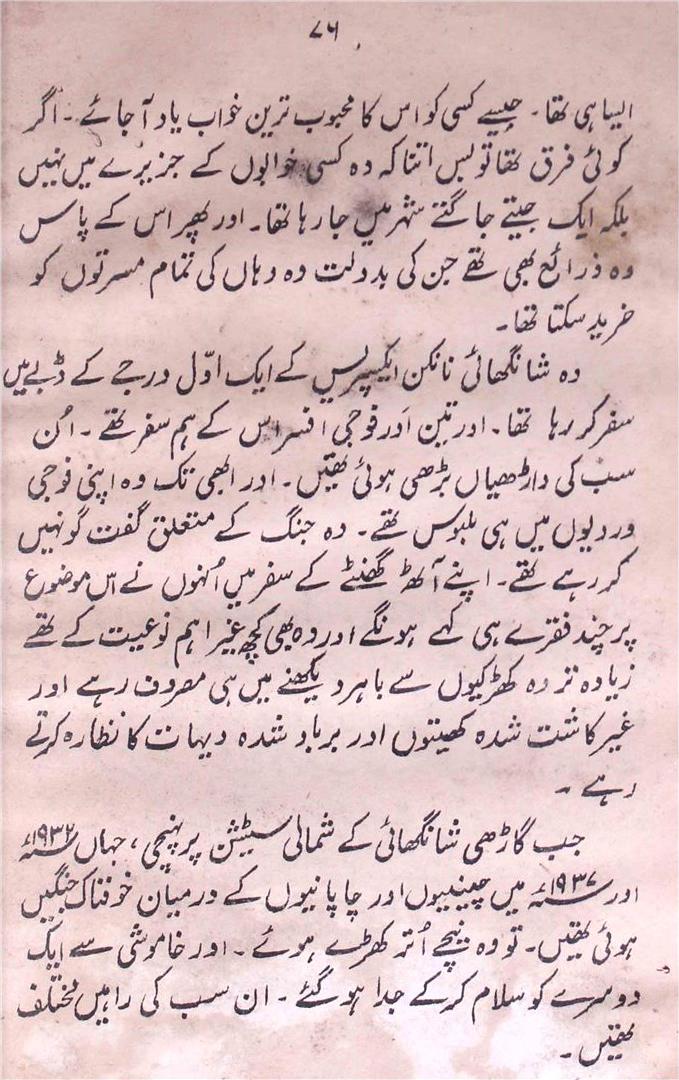 ۷۶
ایسا ہی تھا۔ جیسے کسی کو اس کا محبوب ترین خواب یاد آ جائے ۔ اگر
کوئی فرق تھا تو بس اتنا کہ وہ کسی خوابوں کے جزیرے میں نہیں
بلکہ ایک جیتے جاگتے شہر میں جا رہا تھا۔ اور پھر اس کے پاس
وہ ذرائع بھی تھے جن کی بدولت وہ وہاں کی تمام مسرتوں کو
خرید سکتا تھا۔
وہ شانگھائی نانکن ایکسپریس کے ایک اوّل درجے کے ڈبے میں
سفر کر رہا تھا۔ اور تین اَور فوجی افسر اس کے ہم سفر تھے ۔ اُن
سب کی داڑھیاں بڑھی ہوئی تھیں۔ اور ابھی تک وہ اپنی فوجی
وردیوں میں ہی ملبوس تھے۔ وہ جنگ کے متعلق گفت گو نہیں
کر رہے تھے۔ اپنے آٹھ گھنٹے کے سفر میں اُنہوں نے اس موضوع
پر چند فقرے ہی کہے ہونگے اور وہ بھی کچھ غیر اہم نوعیت کے تھے
زیادہ تر وہ کھڑکیوں سے باہر دیکھنے میں ہی مصروف رہے اور
غیر کاشت شدہ کھیتوں اور برباد شدہ دیہات کا نظارہ کرتے
رہے ۔
جب گاڑھی شانگھائی کے شمالی سٹیشن پر پہنچی ، جہاں ۱۹۳۲ء
اور ۱۹۳۷ء میں چینیوں اور جاپانیوں کے درمیان خوفناک جنگیں
ہوئی تھیں۔ تو وہ نیچے اُتر کھڑے ہوئے ۔ اور خاموشی سے ایک
دوسرے کو سلام کر کے جدا ہو گئے ۔ ان سب کی راہیں مختلف
تھیں ۔